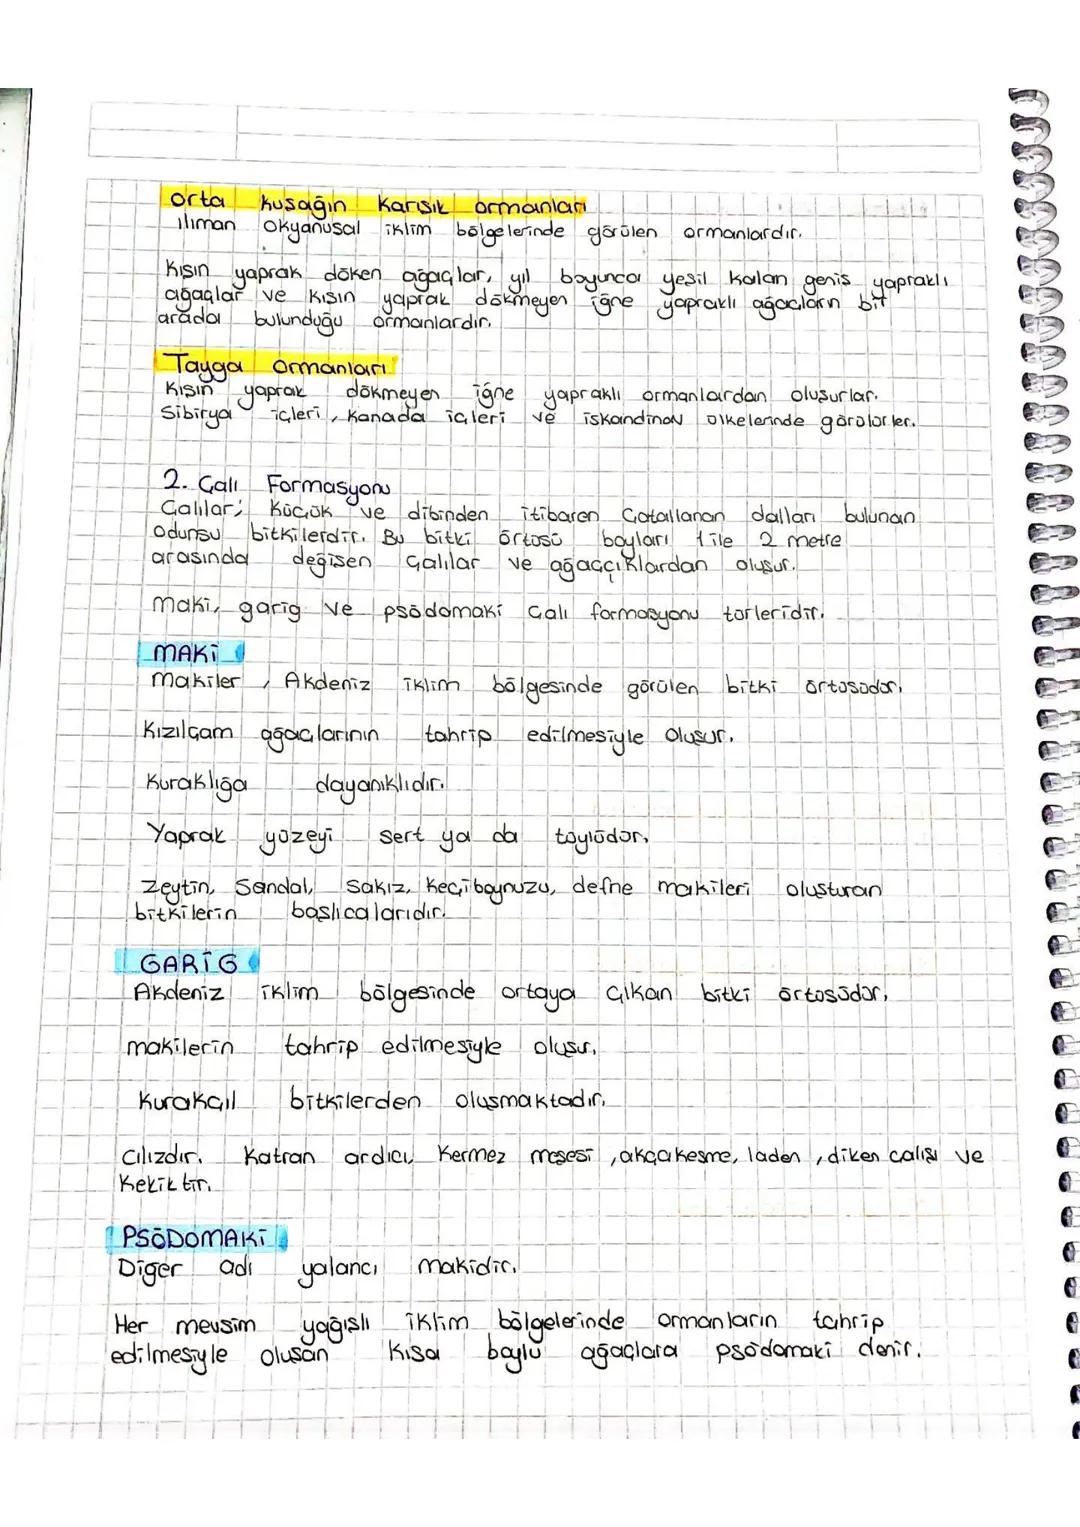 orta kuşağın Karışık ormanları
ılıman okyanusal iklim bölgelerinde görülen ormanlardır.
Kışın yaprak döken ağaçlar, yıl boyunca yeşil kalan geniş yapraklı
ağaçlar ve kışın yaprak dökmeyen iğne yapraklı ağaçların bir
arada bulunduğu ormanlardır.
Tayga Ormanları
Kışın yaprak dökmeyen iğne yapraklı ormanlardan oluşurlar.
Sibirya içleri, Kanada içleri ve iskandinav ülkelerinde görülürler.
2. Çalı Formasyonu
Çalılar; küçük ve dibinden itibaren çatallanan dalları bulunan
odunsu bitkilerdir. Bu bitki örtüsü boyları 1 ile 2 metre
arasında değişen çalılar ve ağaççıklardan oluşur.
Maki, garig ve psödomaki çalı formasyonu türleridir.
MAKİ
Makiler, Akdeniz iklim bölgesinde görülen bitki örtüsüdür.
Kızılçam ağaçlarının tahrip edilmesiyle oluşur.
Kuraklığa dayanıklıdır.
Yaprak yüzeyi sert ya da tüylüdür.
Zeytin, Sandal, sakız, keçiboynuzu, defne makileri oluşturan
bitkilerin başlıcalarıdır.
GARİG
Akdeniz iklim bölgesinde ortaya çıkan bitki örtüsüdür,
makilerin tahrip edilmesiyle oluşur.
Kurakçıl bitkilerden oluşmaktadır.
Cılızdır. Katran ardıcı, Kermez meşesi, akçakesme, laden, diken çalısı ve
Kekiktir.
PSÖDOMAKİ
Diğer adı yalancı makidir.
Her mevsim yağışlı iklim bölgelerinde ormanların tahrip
edilmesiyle oluşan kısa boylu ağaçlara psödomaki denir.